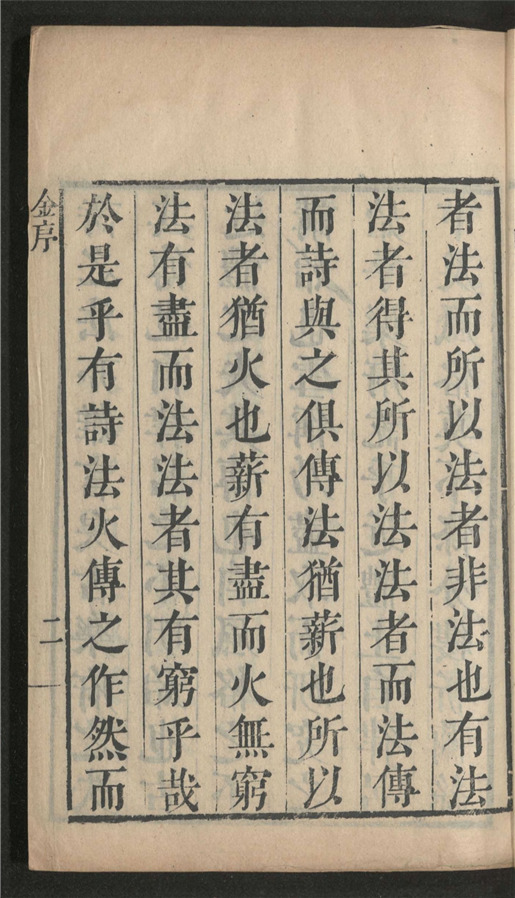 者法而所以法者非法也有法
法者得其所以法法者而法傳
而詩與之俱傳法猶薪也所以
法者猶火也薪有盡而火無窮
法有盡而法法者其有窮乎哉
於是乎有詩法火傳之作然而
金序
二